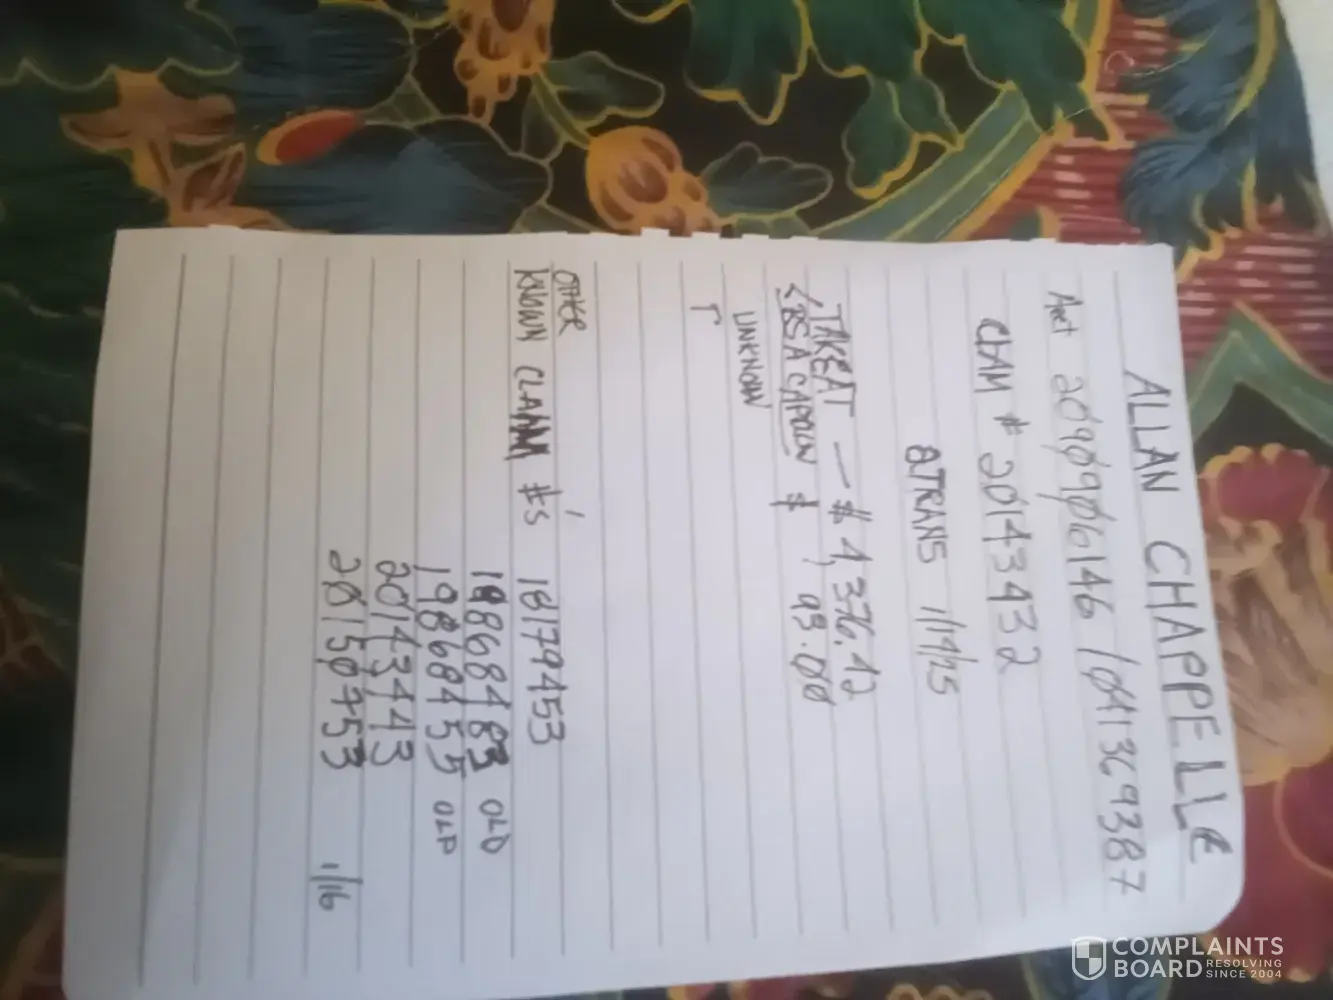 ALLAN CHAPPELLE
Acct 209096146 / 041369387
CLAM # 20143432
2TRANS 1/14/25
TAKEAT - $ 4,376.12
$ , 93.00
UNKNOWN
T
OTHER
KNOWN CLAIM #'S 18179453
19868483 OLD
19868455 OLD
20143443
20150753 1/16
COMPLAINTS
BOARD RESOLVING
SINCE 2004